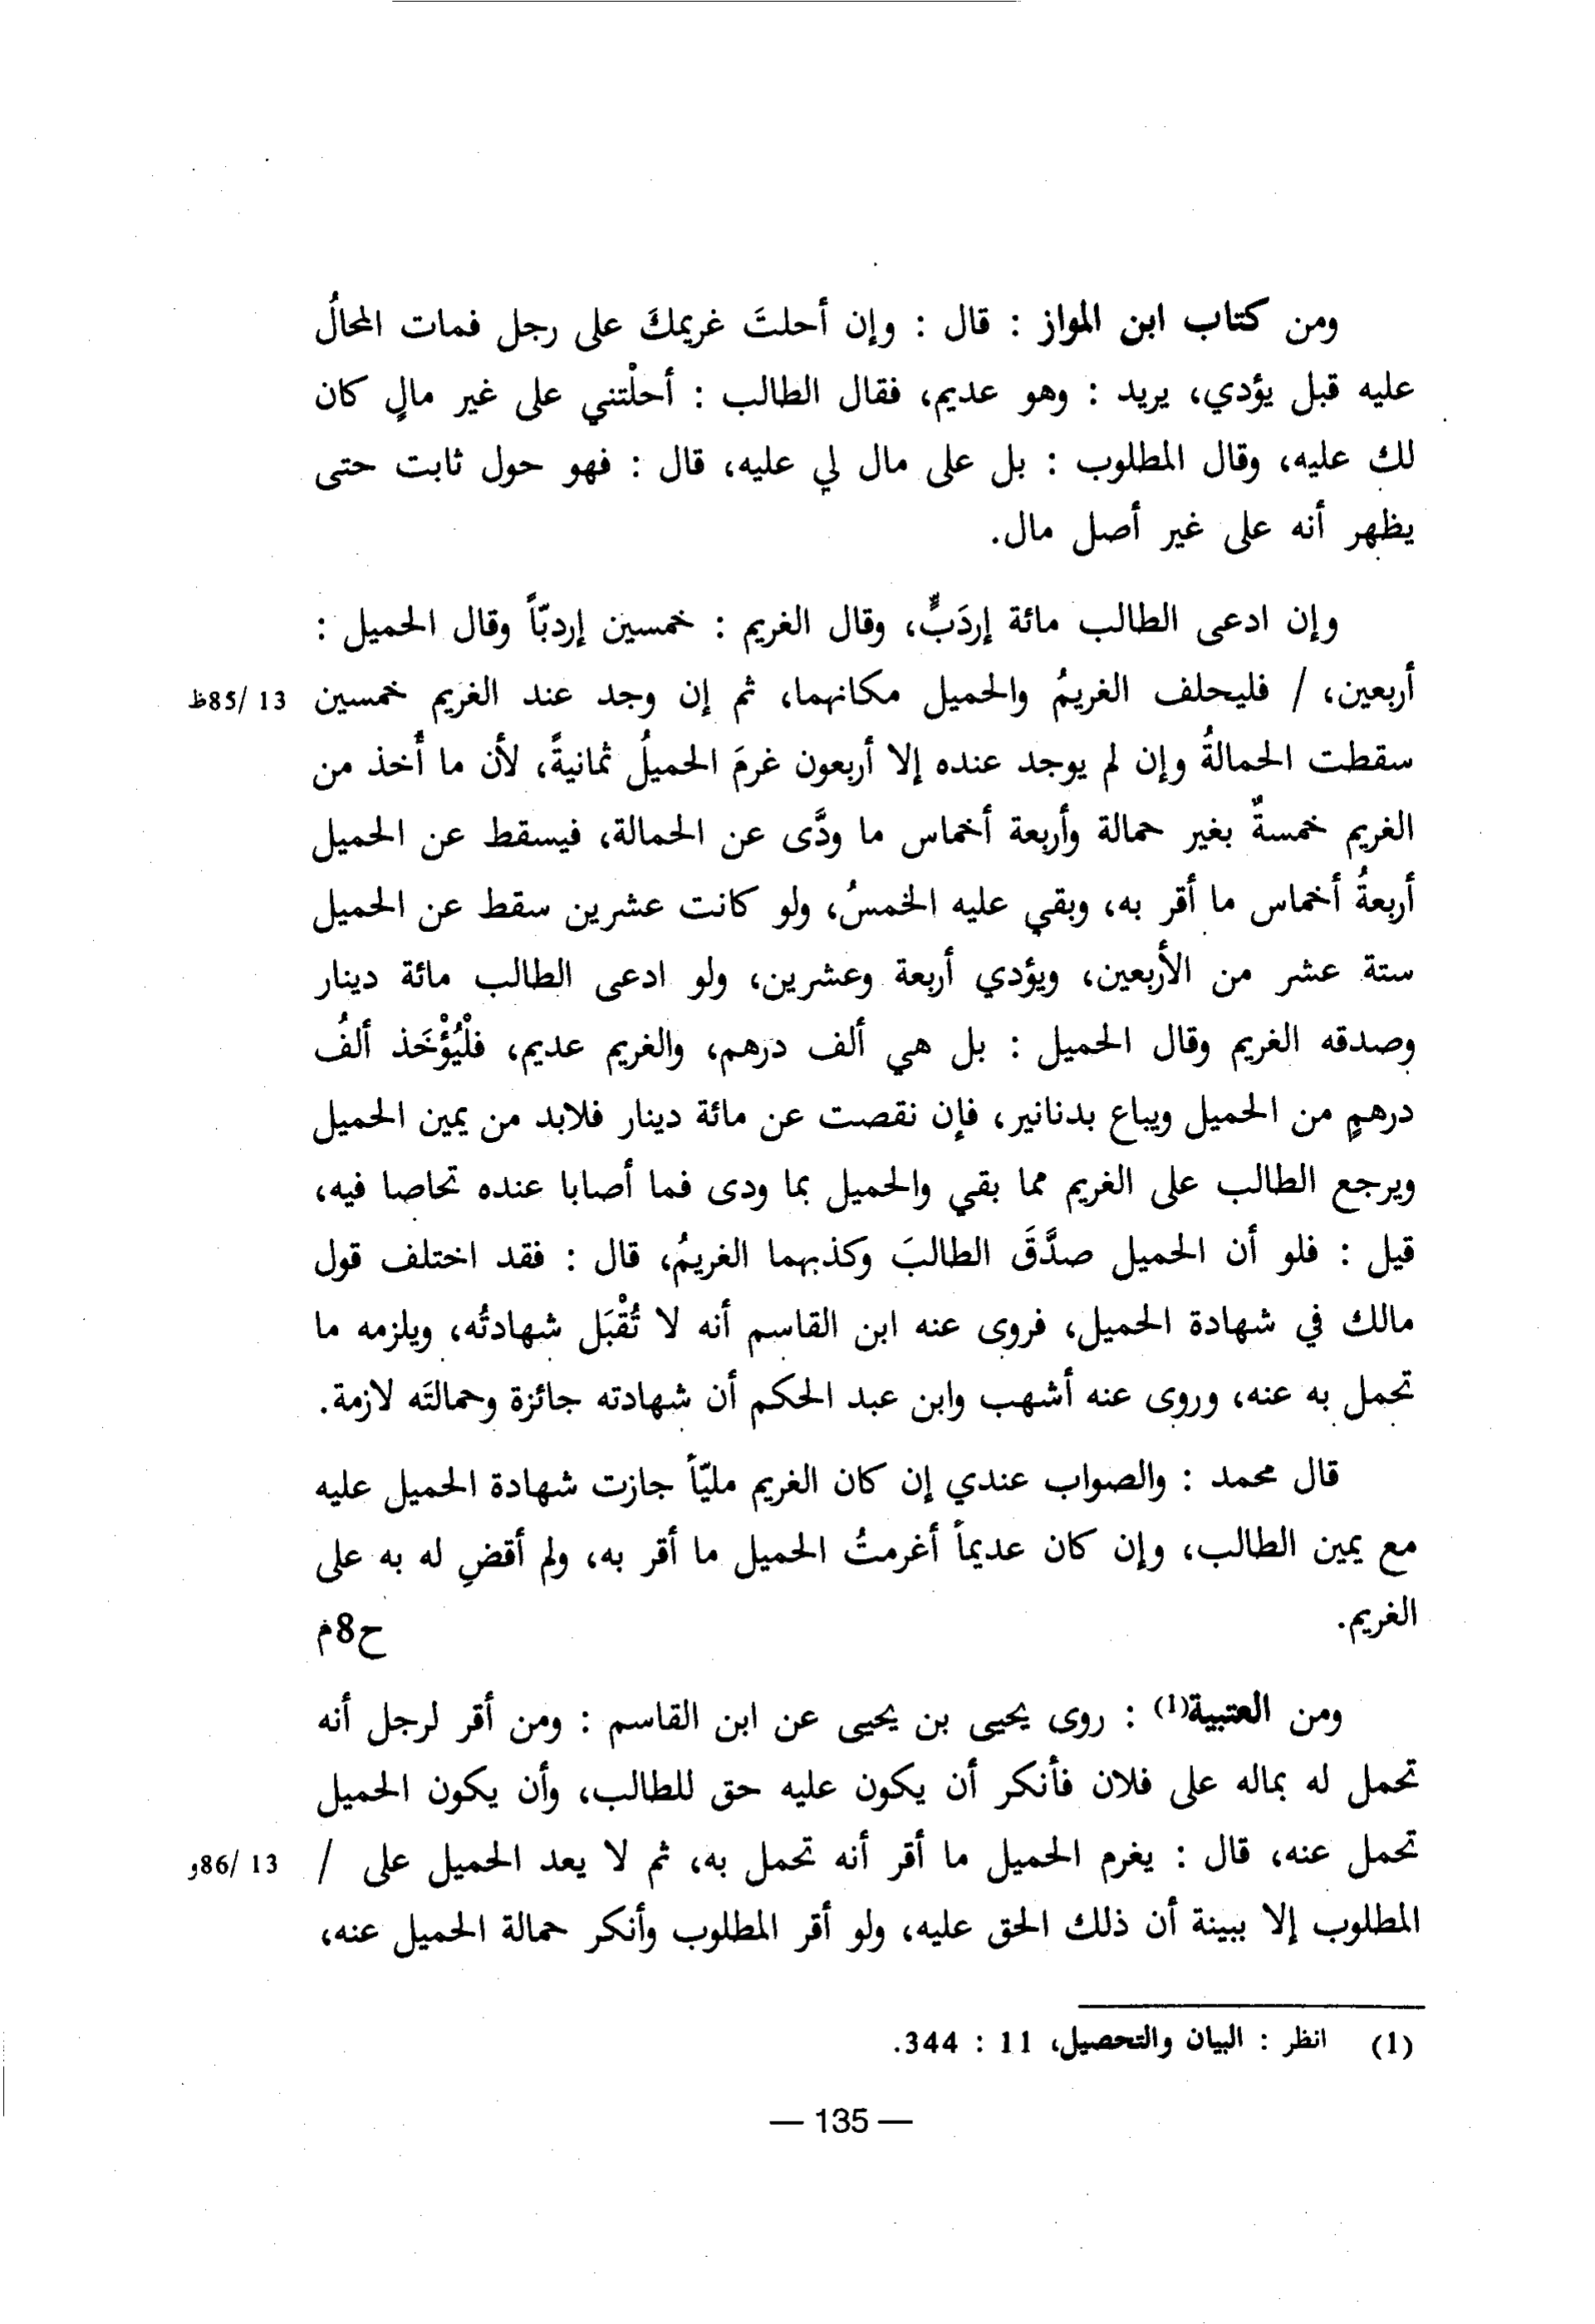 ومن كتاب ابن المواز : قال : وإن أحلتَ غريمكَ على رجل فمات المحالُ
عليه قبل يؤدي، يريد : وهو عديم، فقال الطالب : أحلْتني على غير مالٍ كان
لك عليه، وقال المطلوب : بل على مال لي عليه، قال : فهو حول ثابت حتى
يظهر أنه على غير أصل مال.
وإن ادعى الطالب مائة إردَبٍّ، وقال الغريم : خمسين إردبّاً وقال الحميل :
أربعين، / فليحلف الغريمُ والحميل مكانهما، ثم إن وجد عند الغريم خمسين 13 /85ظ
سقطت الحمالةُ وإن لم يوجد عنده إلا أربعون غرمَ الحميلُ ثمانيةً، لأن ما أُخذ من
الغريم خمسةٌ بغير حمالة وأربعة أخماس ما ودَّى عن الحمالة، فيسقط عن الحميل
أربعةُ أخماس ما أقر به، وبقي عليه الخمسُ، ولو كانت عشرين سقط عن الحميل
ستة عشر من الأربعين، ويؤدي أربعة وعشرين، ولو ادعى الطالب مائة دينار
وصدقه الغريم وقال الحميل : بل هي ألف درهم، والغريم عديم، فلْيُؤْخَذ ألفُ
درهمٍ من الحميل ويباع بدنانير، فإن نقصت عن مائة دينار فلابد من يمين الحميل
ويرجع الطالب على الغريم مما بقي والحميل بما ودى فما أصابا عنده تحاصا فيه،
قيل : فلو أن الحميل صدَّقَ الطالبَ وكذبهما الغريمُ، قال : فقد اختلف قول
مالك في شهادة الحميل، فروى عنه ابن القاسم أنه لا تُقْبَل شهادتُه، ويلزمه ما
تحمل به عنه، وروى عنه أشهب وابن عبد الحكم أن شهادته جائزة وحمالتَه لازمة.
قال محمد : والصواب عندي إن كان الغريم مليّاً جازت شهادة الحميل عليه
مع يمين الطالب، وإن كان عديماً أغرمتُ الحميل ما أقر به، ولم أقضِ له به على
الغريم. ح8م
ومن العتبية(1) : روى يحيى بن يحيى عن ابن القاسم : ومن أقر لرجل أنه
تحمل له بماله على فلان فأنكر أن يكون عليه حق للطالب، وأن يكون الحميل
تحمل عنه، قال : يغرم الحميل ما أقر أنه تحمل به، ثم لا يعد الحميل على / 13 /86و
المطلوب إلا ببينة أن ذلك الحق عليه، ولو أقر المطلوب وأنكر حمالة الحميل عنه،
(1) انظر : البيان والتحصيل، 11 : 344.
— 135 —